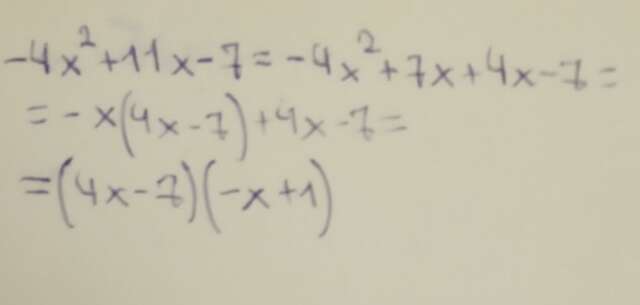 -4x²+11x-7=-4x²+7x+4x-7=
=-x(4x-7)+4x-7=
=(4x-7)(-x+1)